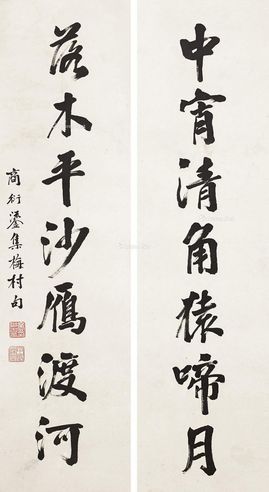 中宵清角猿啼月
落木平沙雁渡河
商衍鎏集梅村句